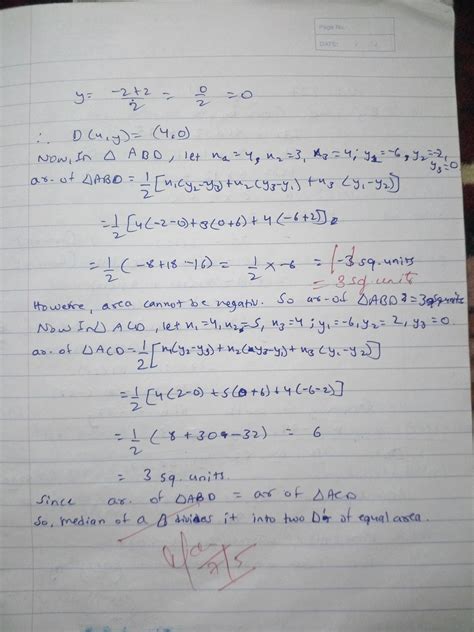 Page No.
DATE: / /
y = -2+2/2 = 0/2 = 0
∴ D(x,y) = (4,0)
Now, In △ ABD, let x1=4, x2=3, x3=4; y1=-6, y2=-2, y3=0
ar. of △ABD = 1/2 [x1(y2-y3)+x2(y3-y1)+x3(y1-y2)]
= 1/2 [4(-2-0)+3(0+6)+4(-6+2)]
= 1/2 (-8+18-16) = 1/2 × -6 = |-3| sq. units
= 3 sq units
However, area cannot be negativ. So ar. of △ABD = 3 sq units
Now In △ ACD, let x1=4, x2=5, x3=4; y1=-6, y2=2, y3=0.
ar. of △ACD = 1/2 [x1(y2-y3)+x2(y3-y1)+x3(y1-y2)]
= 1/2 [4(2-0)+5(0+6)+4(-6-2)]
= 1/2 (8+30-32) = 6
= 3 sq. units.
Since ar. of △ABD = ar of △ACD
So, median of a △ divides it into two △'s of equal area.